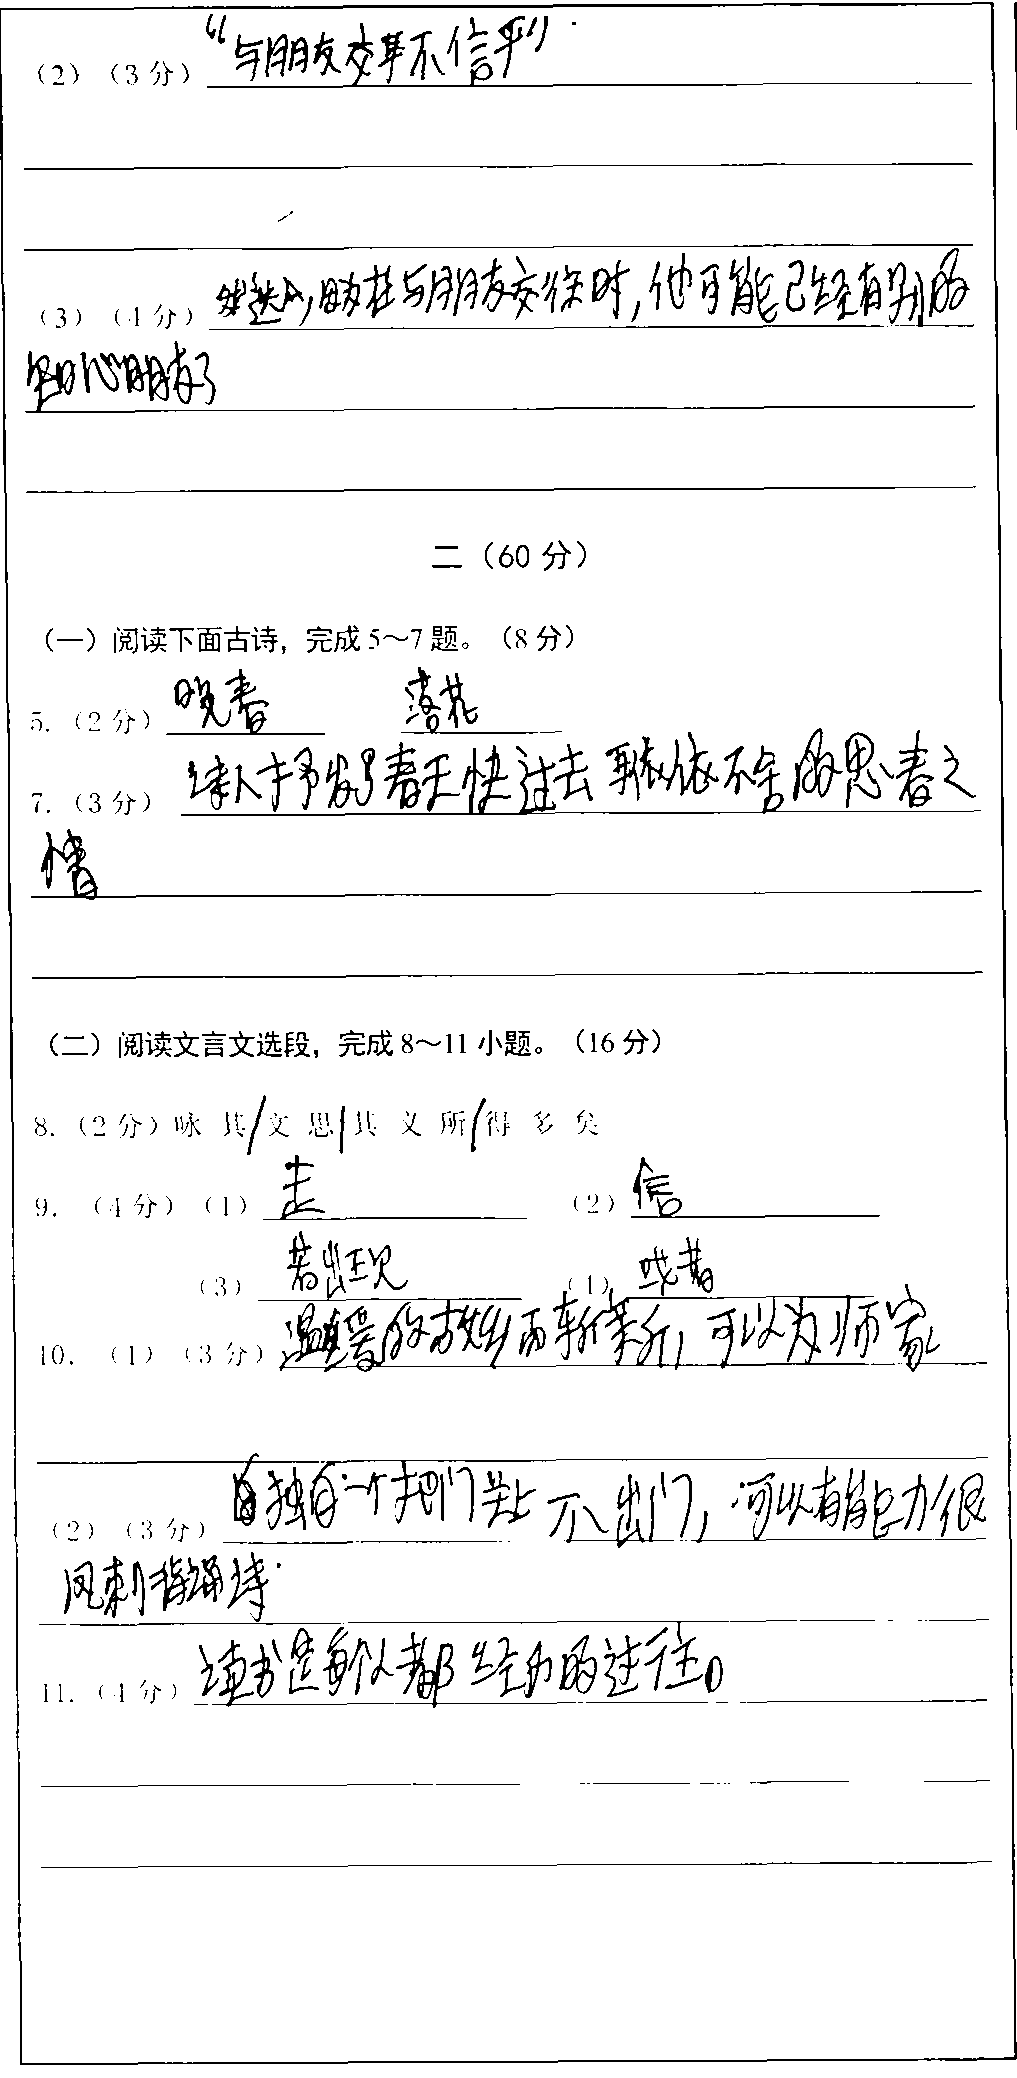 “与朋友交毕不信乎”
(2)（3分）
(3)（4分） 在与朋友交往时,他可能已经有别的
知心朋友了
二（60 分）
（一）阅读下面古诗，完成 5～7 题。（8 分）
5.（2分） 晚春 落花
7.（3分） 诗人抒发了春天快过去 依依不舍的思春之
情
（二）阅读文言文选段，完成 8～11 小题。（16 分）
8.（2分）咏 其/文 思/其 义 所/得 多 矣
9.（4分）（1） 走 （2） 信
（3） 若出现 （4） 或者
10.（1）（3分） 温暖的故乡而新亲近, 可以为师家
（2）（3分） 独自一个把门关上 不出门, 可以有能力很
风刺背诵诗
11.（4分） 读书是每个人都经历的过往。